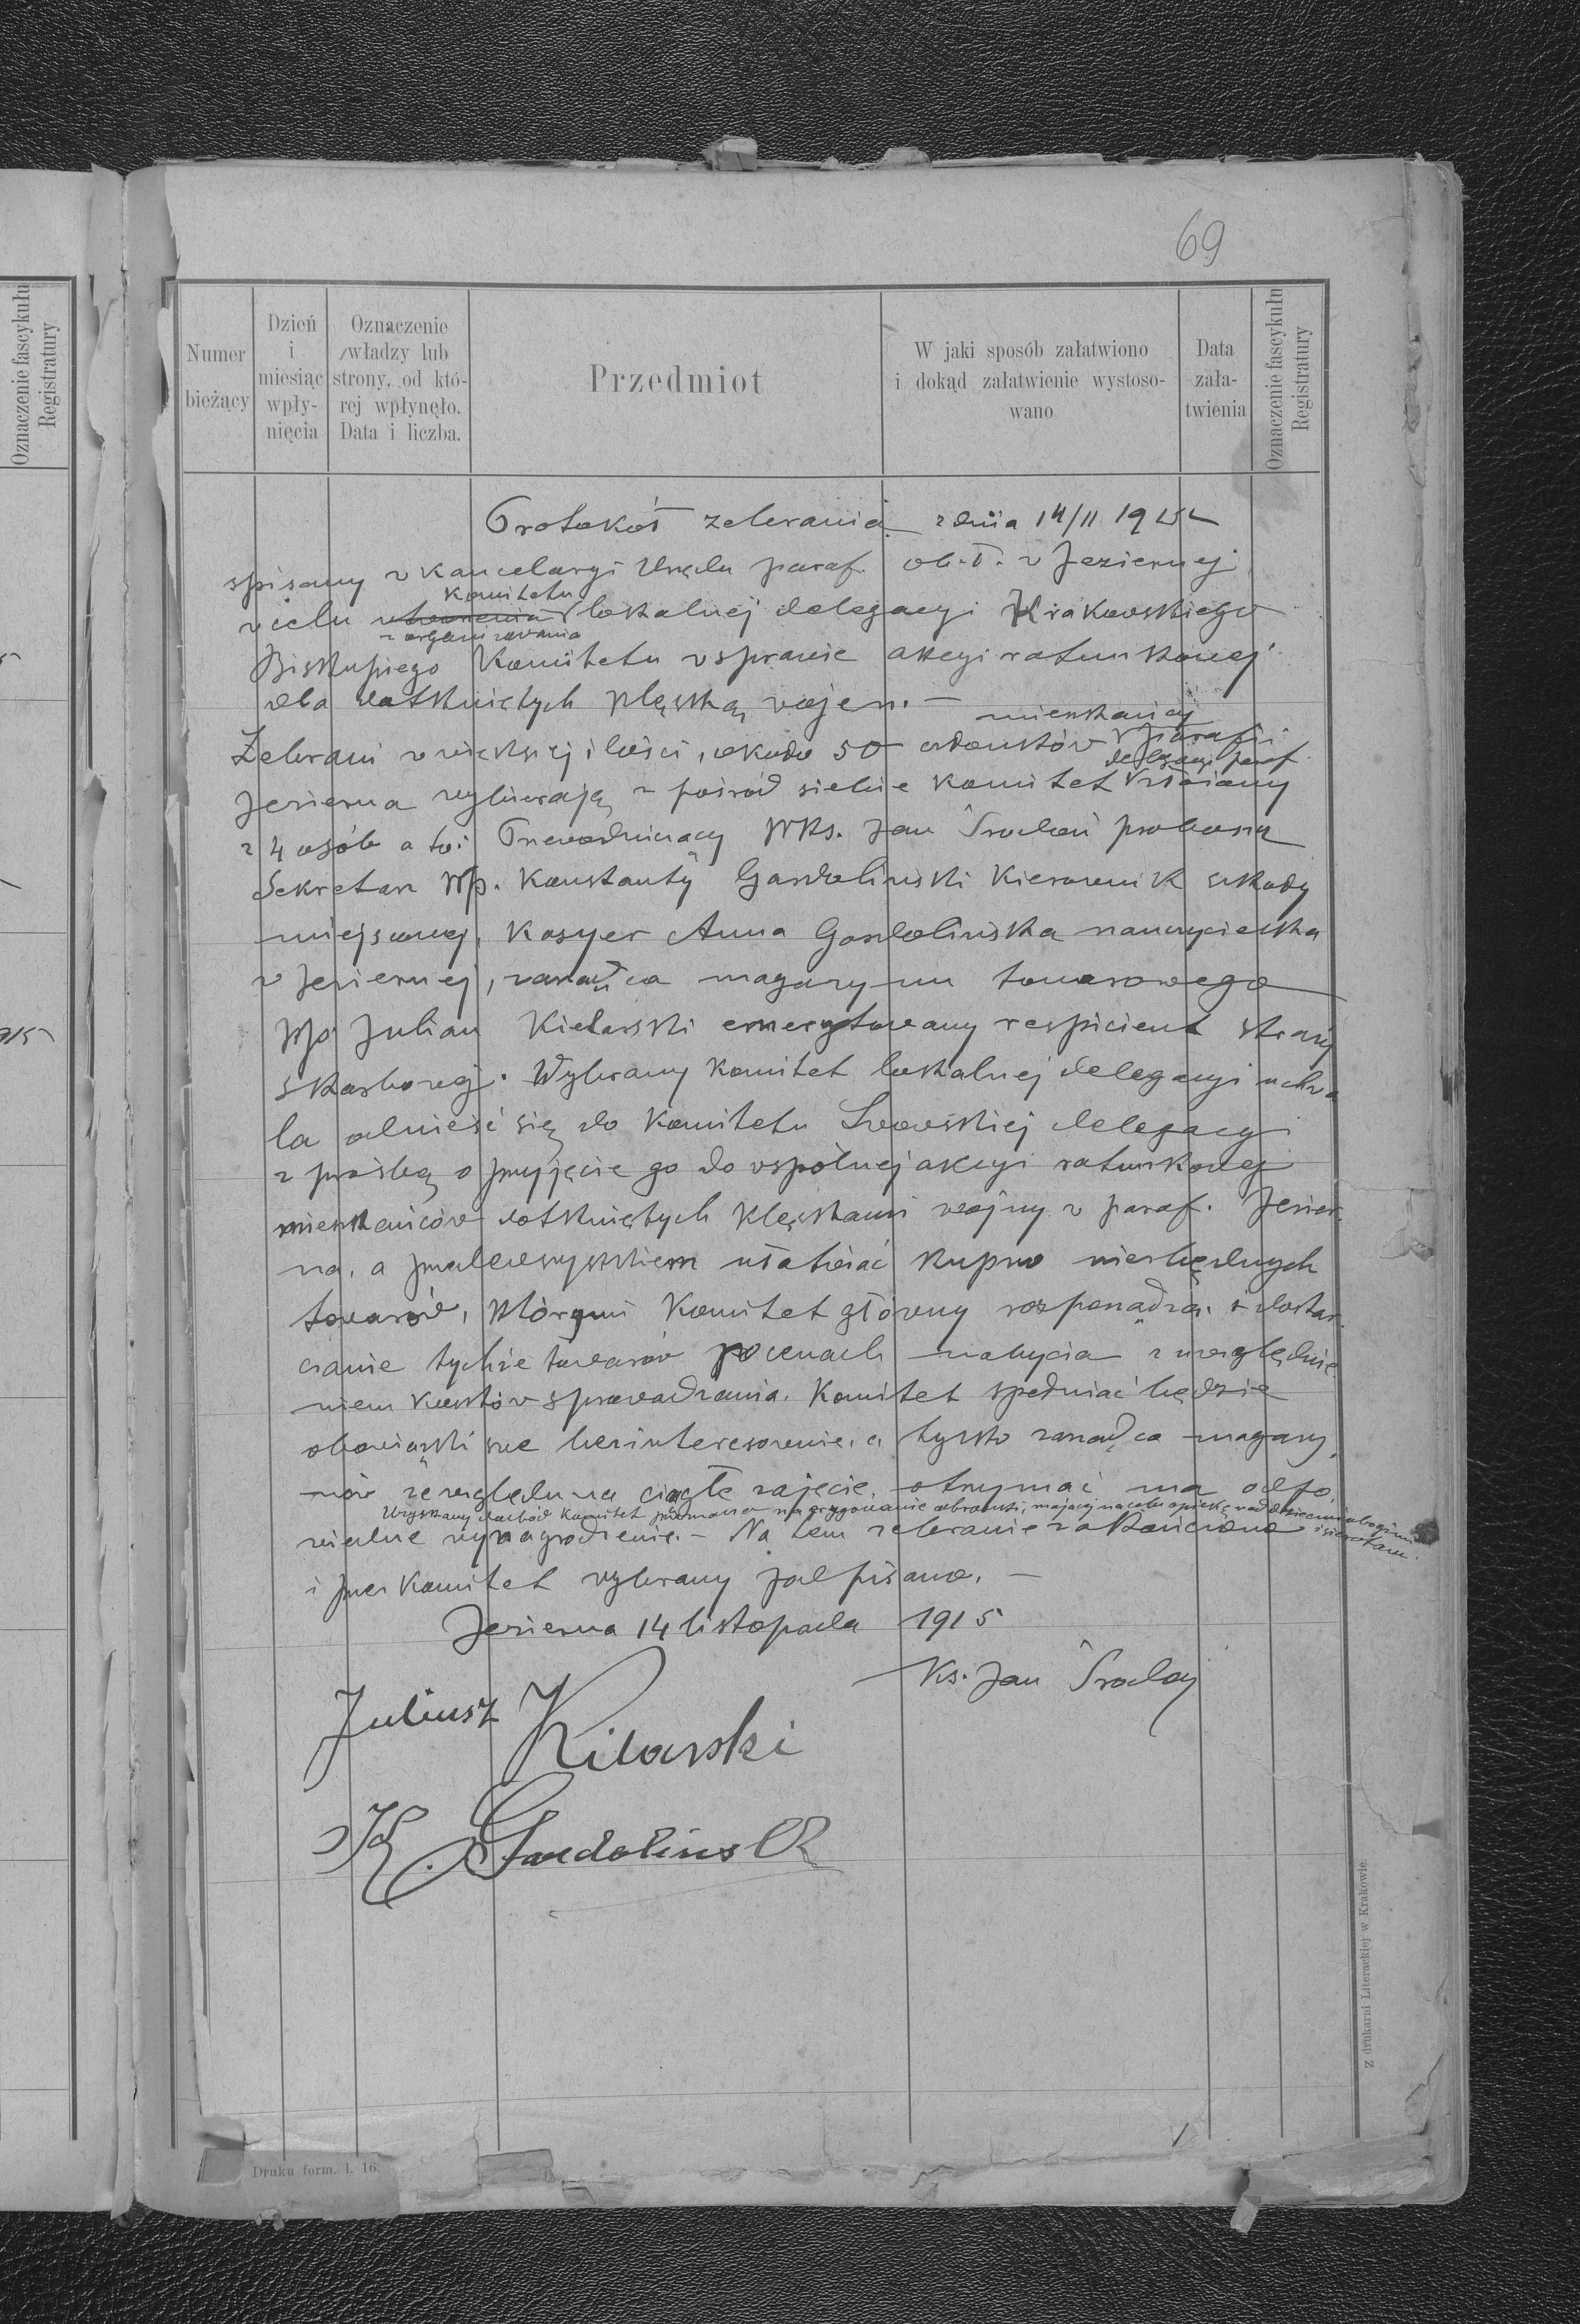 69
Oznaczenie fascykułu
Registratury
Numer
bieżący
Dzień
i
miesiąc
wpły-
nięcia
Oznaczenie
władzy lub
strony, od któ-
rej wpłynęło.
Data i liczba.
Przedmiot
W jaki sposób załatwiono
i dokąd załatwienie wystoso-
wano
Data
zała-
twienia
Oznaczenie fascykułu
Registratury
Protokół zebrania z dnia 14/11 1915
spisany w kancelaryi Urzędu paraf. ob. ł. w Jeziernej
komitetu
w celu utworzenia lokalnej delegacyi Krakowskiego
zorganizowania
Biskupiego Komitetu w sprawie akcyi ratunkowej
dla dotkniętych klęską wojen. —
mieszkańcy
Zebrani w większej ilości, około 50 parafii
delegacyi paraf.
Jezierna wybierają z pośród siebie komitet złożony
z 4 osób a to: Przewodniczący WKs. Jan Środoń proboszcz
Sekretarz Wp. Konstanty Gardoliński Kierownik szkoły
miejscowej, Kasyer Anna Gardolińska nauczycielka
w Jeziernej, zarządca magazynu towarowego
Wp Julian Kielarski emerytowany respicient straży
skarbowej. Wybrany Komitet lokalnej delegacyi uchwa
la odnieść się do Komitetu Lwowskiej delegacyi
z prośbą o przyjęcie go do wspólnej akcyi ratunkowej
mieszkańców dotkniętych klęskami wojny w paraf. Jezier-
na, a przedewszystkiem ułatwiać kupno niezbędnych
towarów, którymi Komitet główny rozporządza, i dostar-
czanie tychże towarów po cenach nabycia z uwzględnie
niem kosztów sprowadzania. Komitet spełniać będzie
obowiązki swe bezinteresownie, a tylko zarządca magazy
nów ze względu na ciągłe zajęcie, otrzymać ma odpo
Uzyskany dochód Komitet przeznacza na ochronki, mającej na celu opiekę nad dziećmi ubogimi
i sierotami.
wiednie wynagrodzenie. — Na tem zebranie zakończono
i przez Komitet wybrany podpisano. —
Jezierna 14 listopada 1915
Ks. Jan Środoń
Juliusz Kilarski
K. Gardoliński
Z drukarni Literackiej w Krakowie.
Druku form. l. 16.